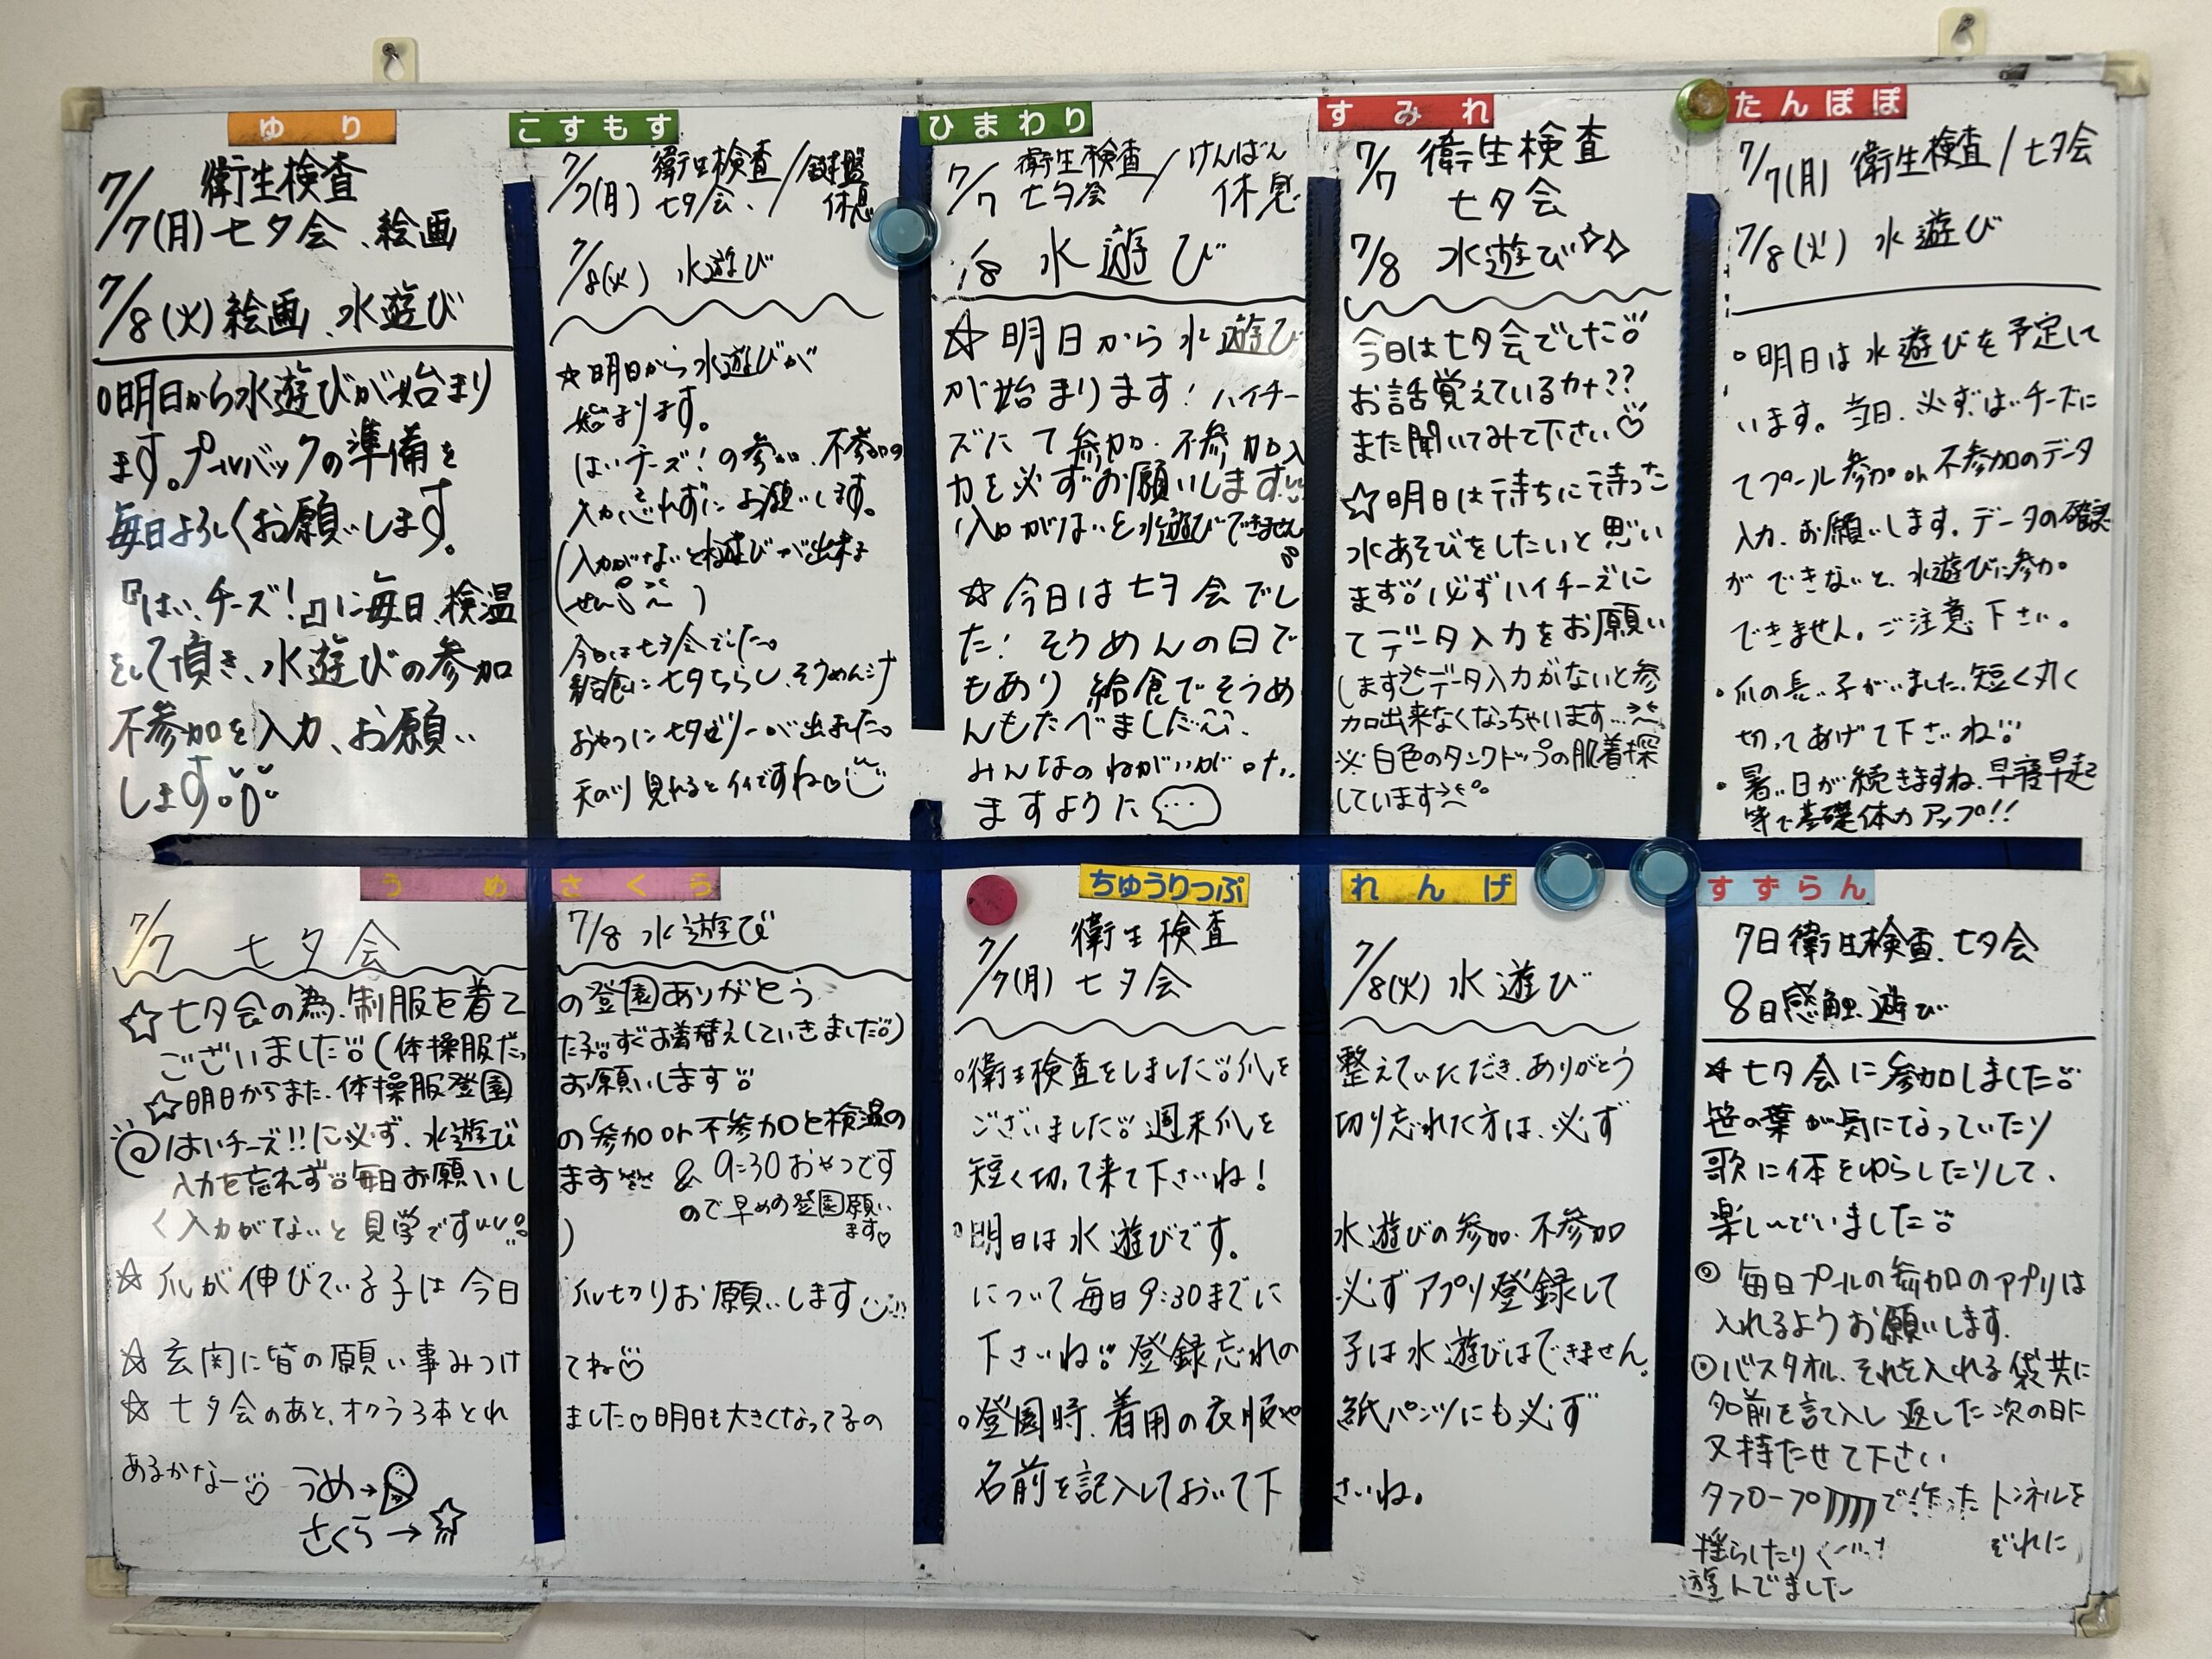 ゆり
7/7(月) 衛生検査
七夕会、絵画
7/8(火) 絵画、水遊び
○明日から水遊びが始まり
ます。プールバックの準備を
毎日よろしくお願いします。
『はい、チーズ!』に毎日、検温
をして頂き、水遊びの参加
不参加を入力、お願い
します
こすもす
7/7(月) 衛生検査/鍵盤
七夕会、/休息
7/8(火) 水遊び
☆明日から水遊びが
始まります。
はいチーズ!の参加、不参加の
入力忘れずにお願いします。
(入力がないと水遊びが出来ま
せん)
今日は七夕会でした。
給食に七夕ちらし、そうめん汁
おやつに七夕ゼリーが出ました。
天の川見れるとイイですね♡
ひまわり
7/7 衛生検査/けんばん
七夕会/休息
/8 水遊び
☆明日から水遊び
が始まります!ハイチー
ズにて参加・不参加入
力を必ずお願いします
(入力がないと水遊びできません
☆今日は七夕会でし
た!そうめんの日で
もあり給食でそうめ
んもたべました
みんなのねがいが
ますように
すみれ
7/7 衛生検査
七夕会
7/8 水遊び☆☆
今日は七夕会でした
お話覚えているカナ??
また聞いてみて下さい♡
☆明日は待ちに待った
水あそびをしたいと思い
ます 必ずハイチーズに
てデータ入力をお願い
します データ入力がないと参
加出来なくなっちゃいます…
※白色のタンクトップの肌着探
しています
たんぽぽ
7/7(月) 衛生検査/七夕会
7/8(火) 水遊び
○明日は水遊びを予定して
います。当日、必ずはいチーズに
てプール参加or不参加のデータ
入力、お願いします。データの確認
ができないと、水遊びに参加
できません。ご注意下さい。
・爪の長い子がいました。短く丸く
切ってあげて下さいね
・暑い日が続きますね。早寝早起
等で基礎体力アップ!!
うめ さくら
7/7 七夕会 7/8 水遊び
☆七夕会の為、制服を着ての登園ありがとう
ございました(体操服だった子すぐお着替えしていきました)
☆明日からまた、体操服登園お願いします
◎はいチーズ!!に必ず、水遊びの参加or不参加と検温の
入力を忘れず 毎日お願いします & 9:30おやつです
ので早めの登園願い
ます♡
(入力がないと見学です)
☆爪が伸びている子は今日爪切りお願いします
☆玄関に皆の願い事みつけてね♡
☆七夕会のあと、オクラ3本とれました♡明日も大きくなってるの
あるかなー
うめ→
さくら→
ちゅうりっぷ れんげ
7/7(月) 衛生検査
七夕会 7/8(火) 水遊び
○衛生検査をしました 爪を整えていただき、ありがとう
ございました 週末爪を切り忘れた方は、必ず
短く切って来て下さいね!
○明日は水遊びです。水遊びの参加・不参加
について毎日9:30までに必ずアプリ登録して
下さいね 登録忘れの子は水遊びはできません。
○登園時、着用の衣服や紙パンツにも必ず
名前を記入しておいて下さいね。
すずらん
7日 衛生検査、七夕会
8日 感触遊び
☆七夕会に参加しました
笹の葉が気になっていたり
歌に体をゆらしたりして、
楽しんでいました
◎毎日プールの参加のアプリは
入れるようお願いします。
◎バスタオル、それを入れる袋共に
名前を記入し返した次の日に
又持たせて下さい
タフロープで作ったトンネルを
揺らしたり
それに
遊んでました